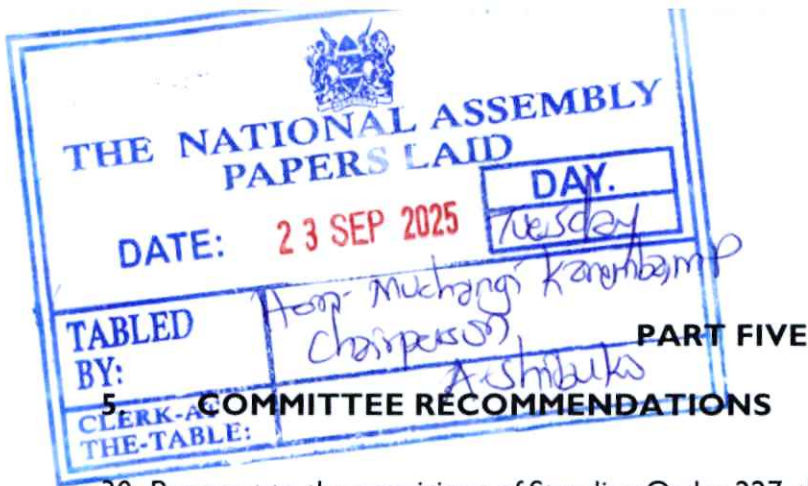 THE NATIONAL ASSEMBLY
PAPERS LAID
DATE: 23 SEP 2025
DAY.
Tuesday
TABLED BY:
Hon. Muchangi Karemba, MP
Chairperson,
PART FIVE
CLERK-AT THE-TABLE:
5. COMMITTEE RECOMMENDATIONS